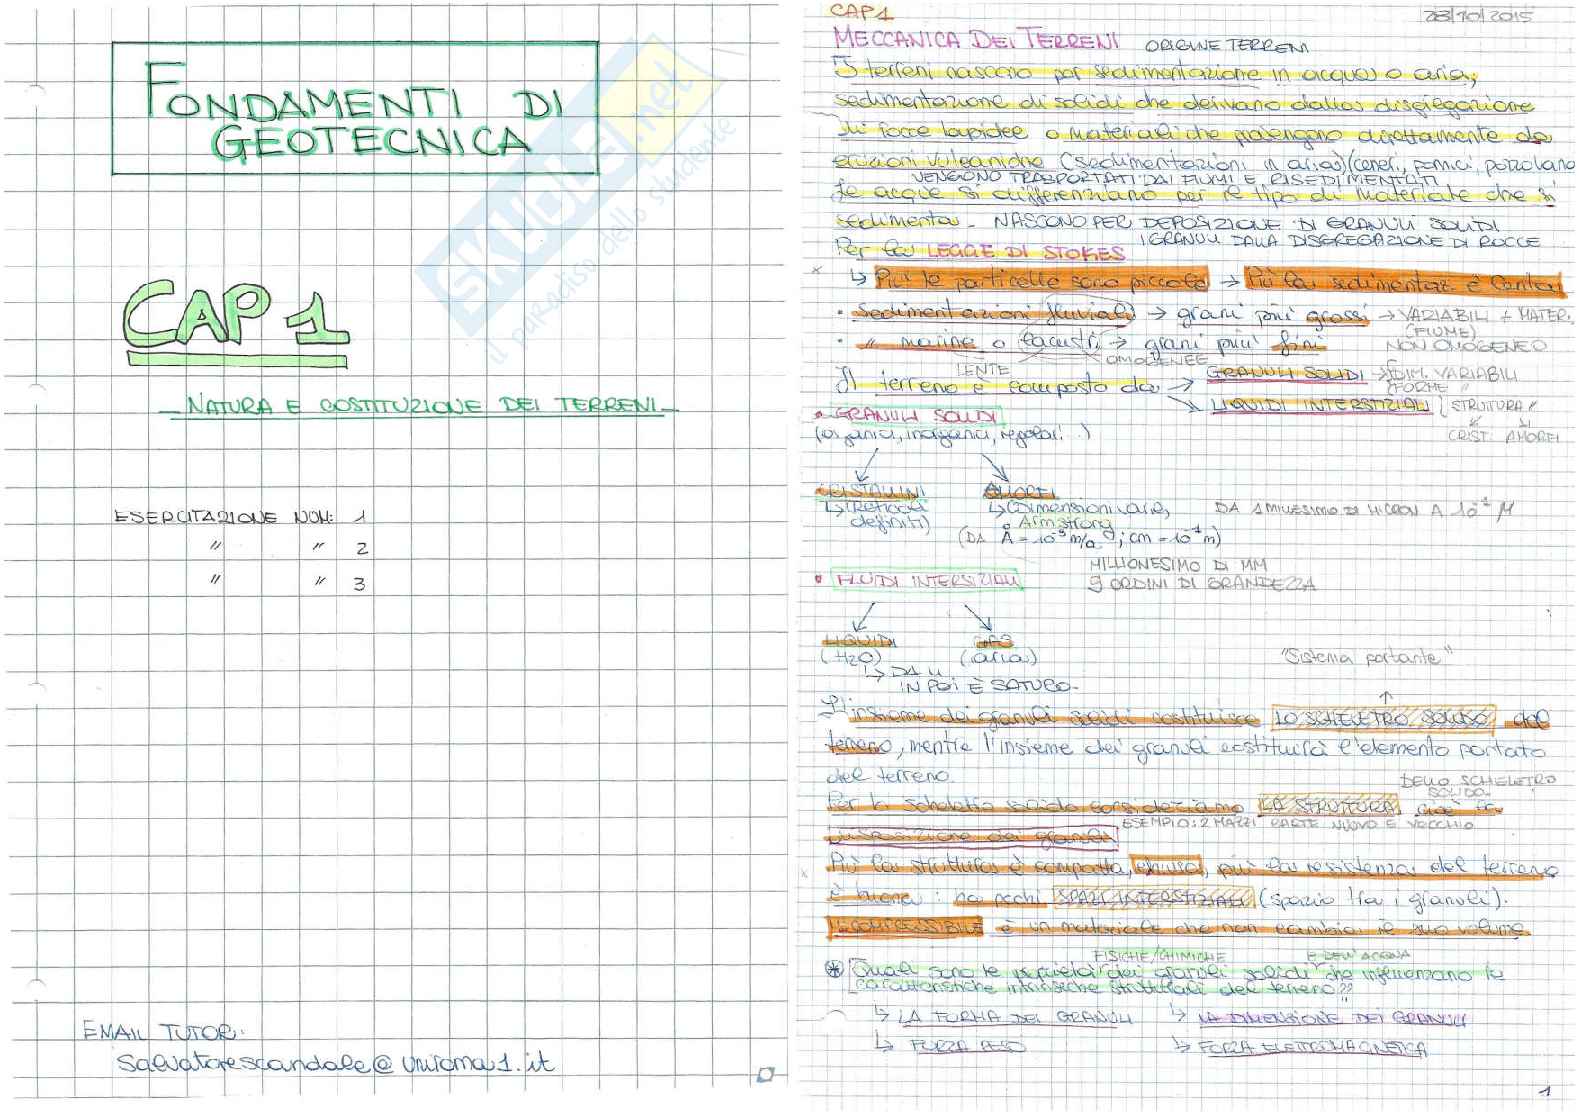 FONDAMENTI DI
GEOTECNICA
SKUOLA.net
il paradiso dello studente
CAP 1
NATURA E COSTITUZIONE DEI TERRENI
ESERCITAZIONE NUM: 1
" " 2
" " 3
EMAIL TUTOR:
salvatorescandale@uniroma1.it
CAP1
28/10/2015
MECCANICA DEI TERRENI ORIGINE TERRENI
I terreni nascono per sedimentazione in acqua o aria,
sedimentazione di solidi che derivano dalla disgregazione
di rocce lapidee o materiali che provengono direttamente da
eruzioni vulcaniche (sedimentazioni in aria) (ceneri, pomici, pozzolana
VENGONO TRASPORTATI DAI FIUMI E RISEDIMENTATI
Le acque si differenziano per le tipo di materiale che si
sedimenta - NASCONO PER DEPOSIZIONE DI GRANULI SOLIDI
I GRANULI DALLA DISGREGAZIONE DI ROCCE
Per la LEGGE DI STOKES
↳ Più le particelle sono piccole → Più la sedimentaz è lenta
• Sedimentazioni fluviali → grani più grossi → VARIABILI + MATER.
(FIUME)
NON OMOGENEO
• " marine o lacustri → grani più fini
LENTE OMOGENEE
Il terreno è composto da → GRANULI SOLIDI → DIM. VARIABILI
FORME "
LIQUIDI INTERSTIZIALI STRUTTURA "
CRIST. AMORFI
• GRANULI SOLIDI
(organici, inorganici, regolari...)
CRISTALLINI AMORFI
↳ (Reticoli definiti) ↳ (Dimensioni varie, DA 1 MILLESIMO DI MICRON A 10⁻¹ M
Armstrong
MILLIONESIMO DI MM
9 ORDINI DI GRANDEZZA
• FLUIDI INTERSTIZIALI
LIQUIDI GAS
(H2O) (aria)
↳ DA LI
IN POI È SATURO-
"Sistema portante"
L'insieme dei granuli solidi costituisce LO SCHELETRO SOLIDO del
terreno, mentre l'insieme dei granuli costituirà l'elemento portato
del terreno.
DELLO SCHELETRO
SOLIDO-
Per lo scheletro solido consideriamo LA STRUTTURA, cioè la
ESEMPIO: 2 MAZZI CARTE NUOVO E VECCHIO
disposizione dei granuli
Più la struttura è compatta, chiusa, più la resistenza del terreno
è buona: ha pochi SPAZI INTERSTIZIALI (spazio tra i granuli).
INCOMPRESSIBILE è un materiale che non cambia il suo volume
FISICHE/CHIMICHE E DELL'ACQUA
* Quali sono le proprietà dei granuli solidi che influenzano le
caratteristiche intrinseche strutturali del terreno??
↳ LA FORMA DEI GRANULI ↳ LA DIMENSIONE DEI GRANULI
↳ FORZA PESO ↳ FORZA ELETTROMAGNETICA
1